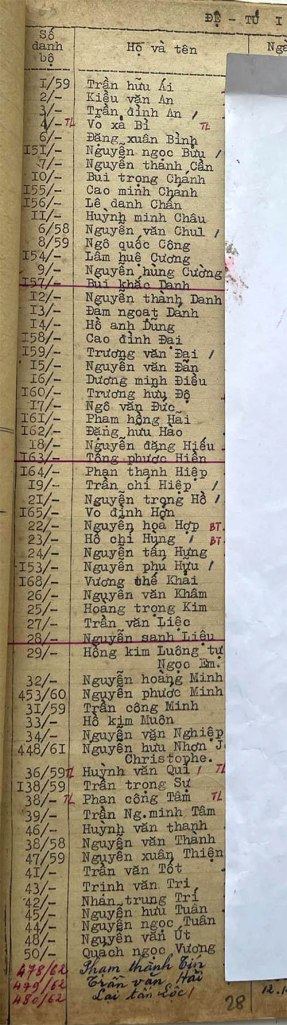 ĐỆ - TỬ I
Số danh bộ Họ và tên Ngà
1/59 Trần hữu Ái
2/- Kiều văn An
3/- Trần đình An /
4/- TL Vo xá Bi TL
6/- Đặng xuân Bình
151/- Nguyễn ngọc Bửu /
7/- Nguyễn thành Cần
10/- Bui trọng Chánh
155/- Cao minh Chánh
156/- Lê danh Chấn
11/- Huỳnh minh Châu
6/58 Nguyễn văn Chul /
8/59 Ngô quốc Công
154/- Lâm huệ Cương
9/- Nguyễn hùng Cường
157/- Bui khắc Danh
12/- Nguyễn thành Danh
13/- Đam ngoạt Danh
14/- Hồ anh Dũng
158/- Cao đình Đai
159/- Trương văn Đại /
15/- Nguyễn văn Đản
16/- Dương minh Điều
160/- Trương hưu Độ
17/- Ngô văn Đức
161/- Phạm hồng Hai
162/- Đặng hưu Hao
18/- Nguyễn đăng Hiếu
163/- Tống phước Hiền
164/- Phan thanh Hiệp
19/- Trần chí Hiệp /
21/- Nguyễn trọng Hồ /
165/- Vo định Hơn
22/- Nguyễn họa Hợp BT
23/- Hồ chí Hung / BT
24/- Nguyễn tấn Hưng
153/- Nguyễn phu Hựu /
168/- Vương thế Khải
26/- Nguyễn văn Khâm
25/- Hoàng trọng Kim
27/- Trần văn Liệc
28/- Nguyễn sanh Liêu
29/- Hồng kim Luông tự
Ngọc Em.
32/- Nguyễn hoàng Minh
453/60 Nguyễn phước Minh
31/59 Trần công Minh
33/- Hồ kim Muôn
34/- Nguyễn văn Nghiệp
448/61 Nguyễn hưu Nhơn J
Christophe.
36/59 TL Huỳnh văn Qui / TL
138/59 Trần trọng Sự
38/- TL Phan công Tâm TL
39/- Trần Ng.minh Tâm
46/- Huynh văn thanh
38/58 Nguyễn văn Thành
47/59 Nguyễn xuân Thiện
41/- Trần văn Tốt
43/- Trinh văn Tri
42/- Nhân trung Tri
45/- Nguyễn hưu Tuân
44/- Nguyễn ngọc Tuân
48/- Nguyễn văn Út
50/- Quách ngọc Vương
478/62 Phạm thành Tín
479/62 Trần văn Hai
480/62 Lai tấn Lộc /
28